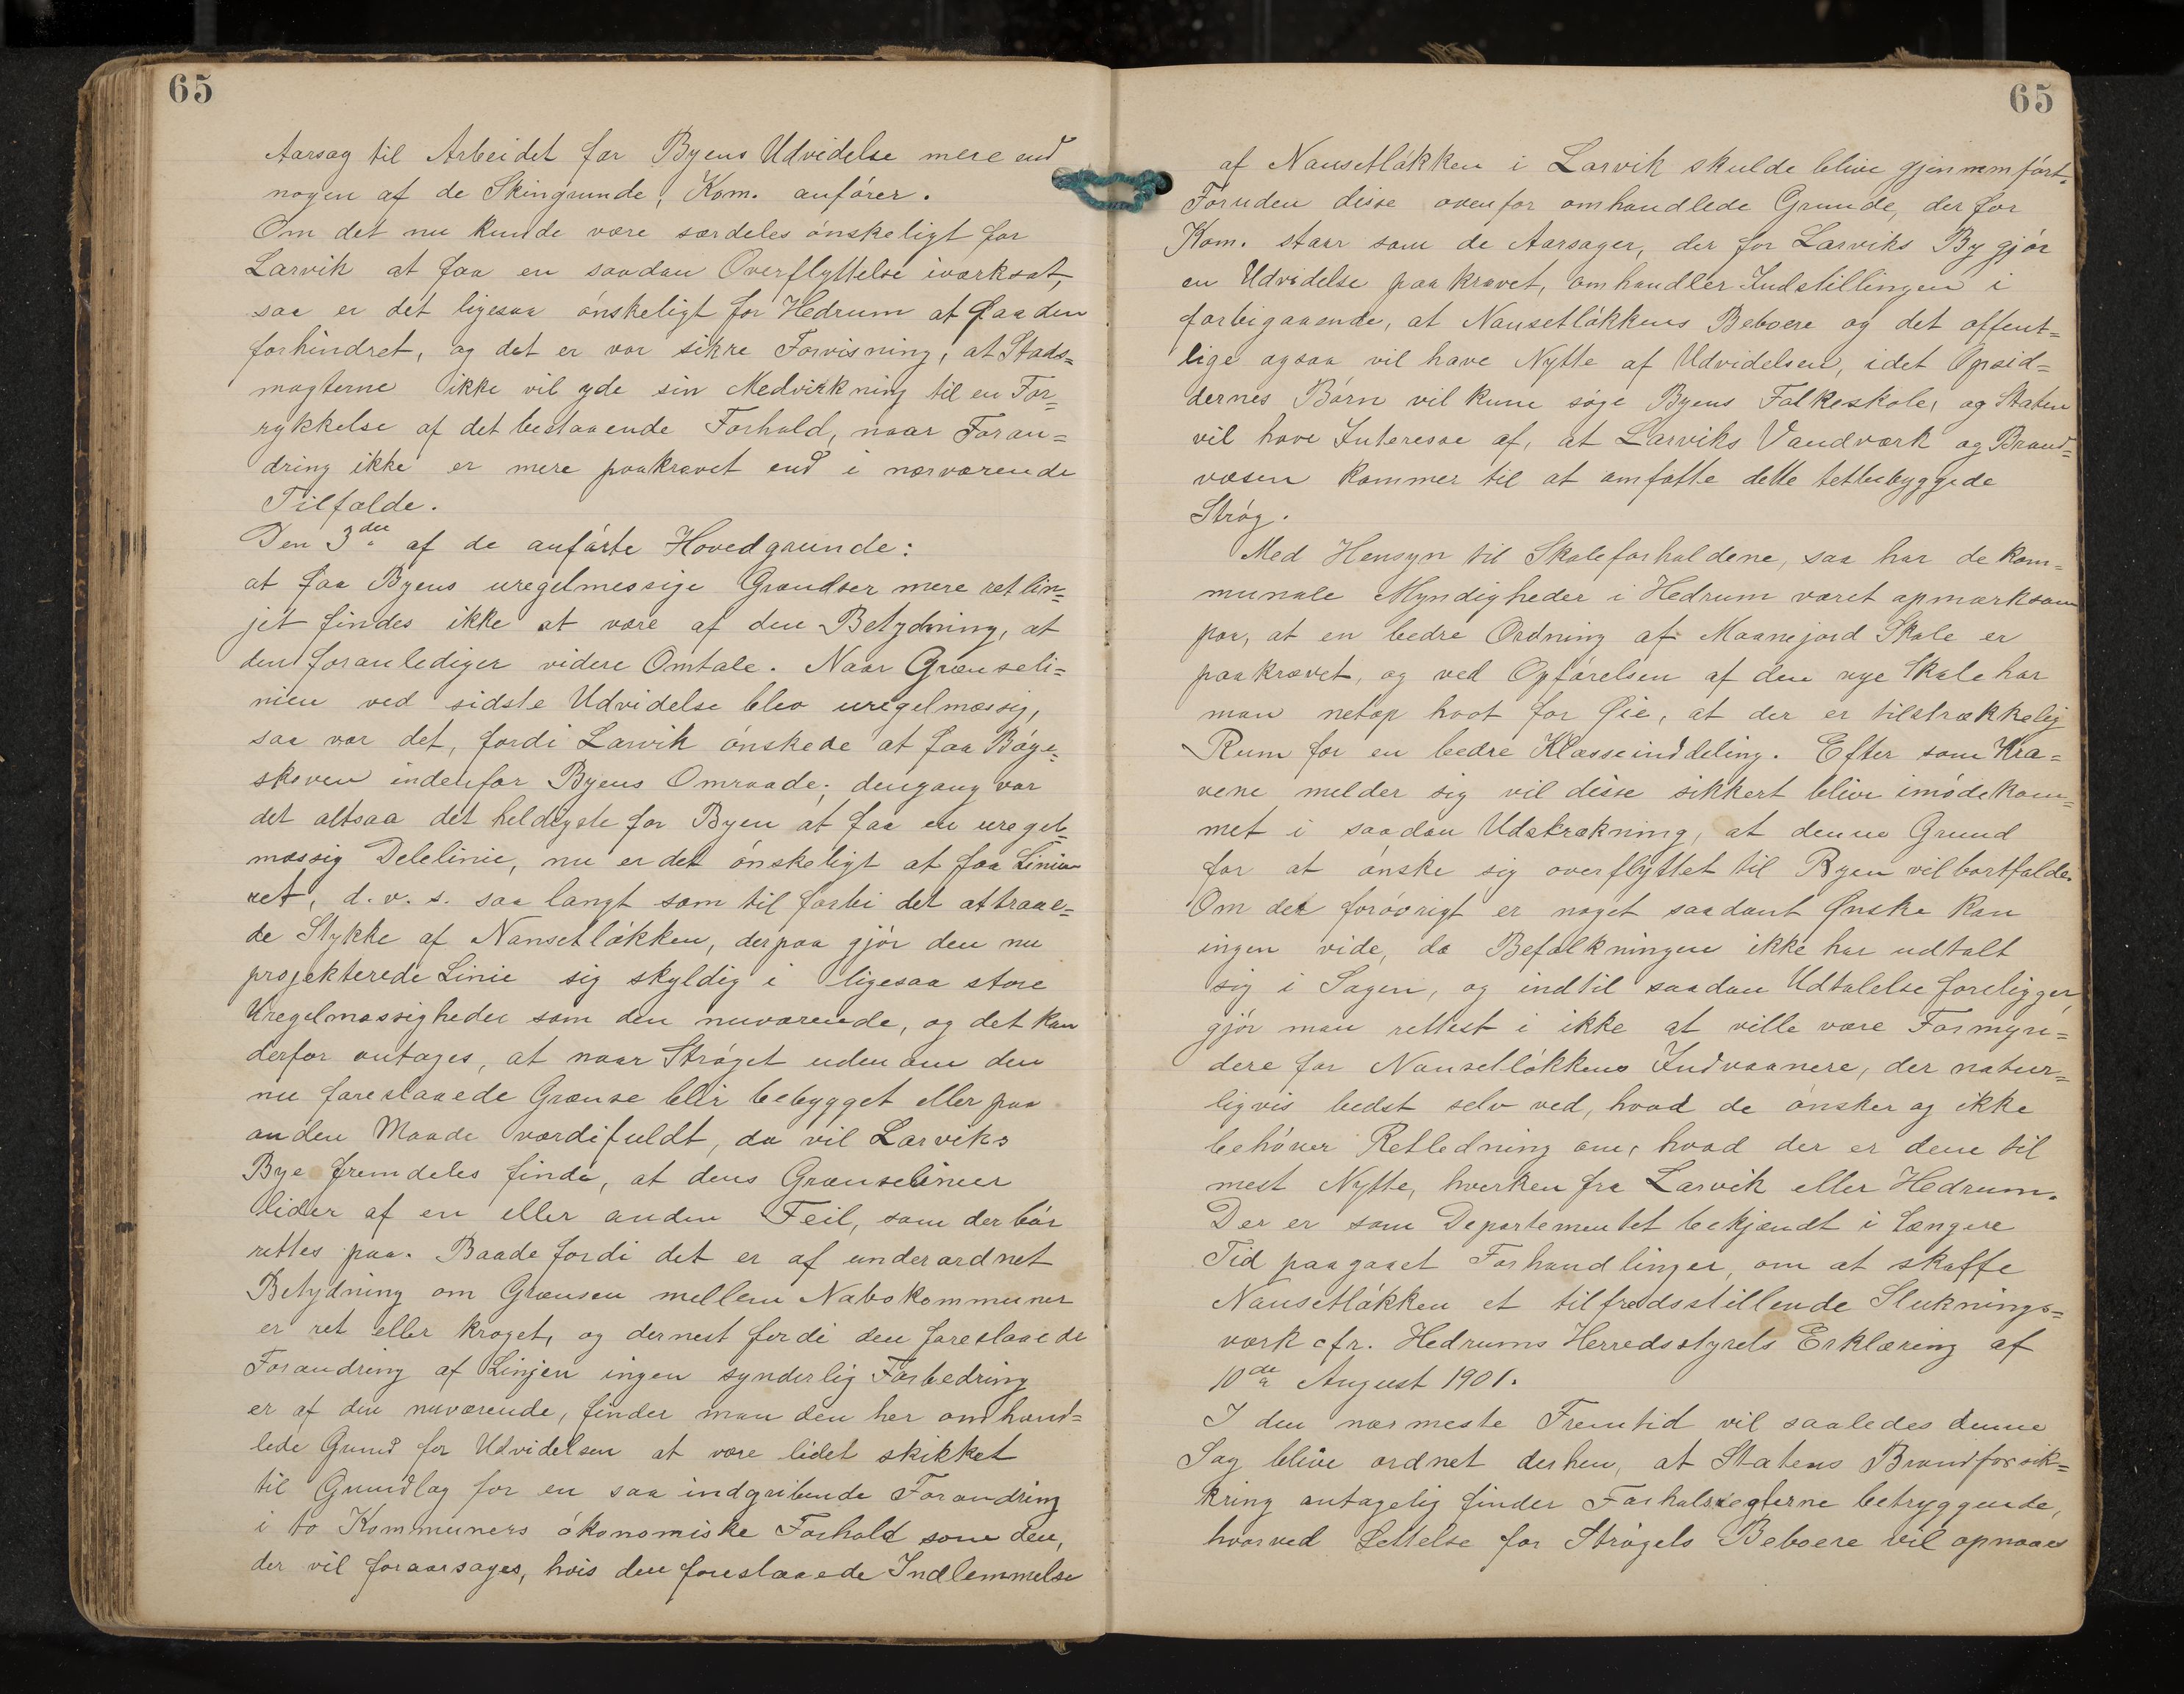 65
Aarsag til Arbeidet for Byens Udvidelse mere end
nogen af de Skingrunde, Kom. anfører.
Om det nu kunde være særdeles ønskeligt for
Larvik at faa en saadan Overflyttelse iværksat,
saa er det ligesaa ønskeligt for Hedrum at faa den
forhindret, og det er vor sikre Forvisning, at Stads=
magterne ikke vil yde sin Medvirkning til en For=
rykkelse af det bestaaende Forhold, naar Foran=
dring ikke er mere paakrævet end i nærværende
Tilfælde.
Den 3die af de anførte Hovedgrunde:
at faa Byens uregelmessige Grændser mere retlin=
jet findes ikke at være af den Betydning, at
den foranlediger videre Omtale. Naar Grænseli=
nien ved sidste Udvidelse blev uregelmæssig,
saa var det, fordi Larvik ønskede at faa Bøge=
skoven indenfor Byens Omraade; dengang var
det altsaa det heldigste for Byen at faa en uregel=
mæssig Delelinie, nu er det ønskeligt at faa Linien
ret, d. v. s. saa langt som til forbi det attraae=
de Stykke af Nansetløkken, derpaa gjør den nu
projekterede Linie sig skyldig i ligesaa store
Uregelmæssigheder som den nuværende, og det kan
derfor antages, at naar Strøget uden om den
nu foreslaaede Grænse blir bebygget eller paa
anden Maade værdifuldt, da vil Larviks
Bye fremdeles finde, at dens Grænselinier
lider af en eller anden Feil, som der bør
rettes paa. Baade fordi det er af underordnet
Betydning om Grænsen mellem Nabokommuner
er ret eller kroget, og dernest fordi den foreslaaede
Forandring af Linjen ingen synderlig Forbedring
er af den nuværende, finder man den her omhand=
lede Grund for Udvidelsen at være lidet skikket
til Grundlag for en saa indgribende Forandring
i to Kommuners økonomiske Forhold som den,
der vil foraarsages, hvis den foreslaaede Indlemmelse
65
af Nansetløkken i Larvik skulde blive gjennemført.
Foruden disse ovenfor omhandlede Grunde, der for
Kom. staar som de Aarsager, der for Larviks By gjør
en Udvidelse paakrævet, omhandler Indstillingen i
forbigaaende, at Nansetløkkens Beboere og det offent=
lige ogsaa vil have Nytte af Udvidelsen, idet Opsid=
dernes Børn vil kune søge Byens Folkeskole, og Staten
vil have Interesse af, at Larviks Vandværk og Brand=
væsen kommer til at omfatte dette tetbebyggede
Strøg.
Med Hensyn til Skoleforholdene, saa har de kom=
munale Myndigheder i Hedrum været opmærksom
paa, at en bedre Ordning af Maanejord Skole er
paakrævet, og ved Opførelsen af den nye Skole har
man netop havt for Øie, at der er tilstrækkelig
Rum for en bedre Klasseinddeling. Efter som Kra=
vene melder sig vil disse sikkert blive imødekom=
met i saadan Udstrækning, at denne Grund
for at ønske sig overflyttet til Byen vil bortfalde.
Om det forøvrigt er noget saadant Ønske kan
ingen vide, da Befolkningen ikke har udtalt
sig i Sagen, og indtil saadan Udtalelse foreligger,
gjør man rettest i ikke at ville være Formyn=
dere for Nansetløkkens Indvaanere, der natur=
ligvis bedst selv ved, hvad de ønsker og ikke
behøver Retledning om, hvad der er dene til
mest Nytte, hverken fra Larvik eller Hedrum.
Der er som Departementet bekjændt i længere
Tid paagaaet Forhandlinger, om at skaffe
Nansetløkken et tilfredsstillende Sluknings=
værk cfr. Hedrums Herredsstyrets Erklæring af
10de August 1901.
I den nærmeste Fremtid vil saaledes denne
Sag blive ordnet derhen, at Statens Brandforsik=
kring antagelig finder Forholdsreglerne betryggende,
hvorved Lettelse for Strøgets Beboere vil opnaaes